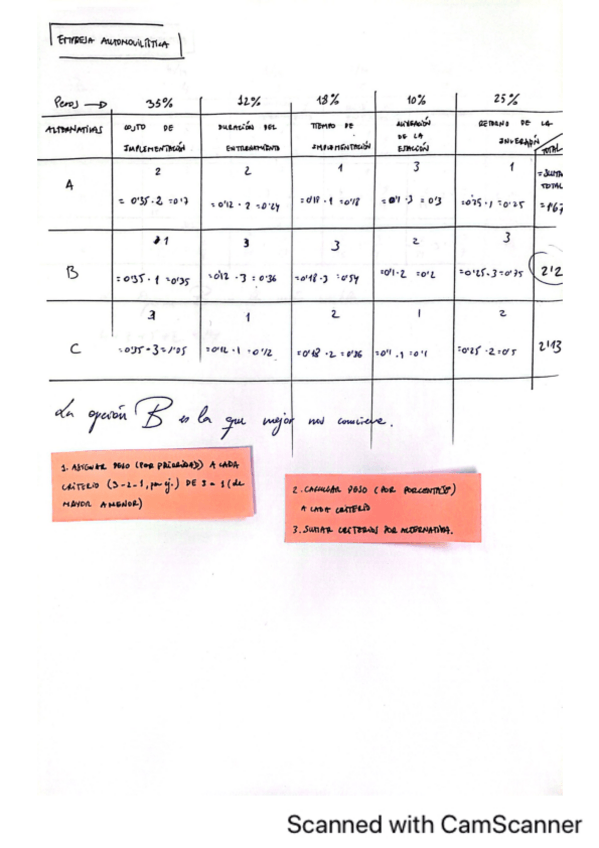 EMPRESA AUTOMOVILÍSTICA
PESOS → 35% 12% 18% 10% 25%
ALTERNATIVAS COSTO DE IMPLEMENTACIÓN DURACIÓN DEL ENTRENAMIENTO TIEMPO DE IMPLEMENTACIÓN DE LA ESTACIÓN RETORNO DE LA INVERSIÓN TOTAL
A 2 2 1 3 1 = SUMA TOTAL
= 0'35 · 2 = 0'7 = 0'12 · 2 = 0'24 = 0'18 · 1 = 0'18 = 0'1 · 3 = 0'3 = 0'25 · 1 = 0'25 = 1'67
B 1 3 3 2 3
= 0'35 · 1 = 0'35 = 0'12 · 3 = 0'36 = 0'18 · 3 = 0'54 = 0'1 · 2 = 0'2 = 0'25 · 3 = 0'75 2'2
C 3 1 2 1 2
= 0'35 · 3 = 1'05 = 0'12 · 1 = 0'12 = 0'18 · 2 = 0'36 = 0'1 · 1 = 0'1 = 0'25 · 2 = 0'5 2'13
La opción B es la que mejor nos conviene.
1. ASIGNAR PESO (POR PRIORIDAD) A CADA
CRITERIO (3-2-1, por ej.) DE 3 a 1 (de
MAYOR A MENOR)
2. CALCULAR PESO (POR PORCENTAJE)
A CADA CRITERIO
3. SUMAR CRITERIOS POR ALTERNATIVA.
Scanned with CamScanner